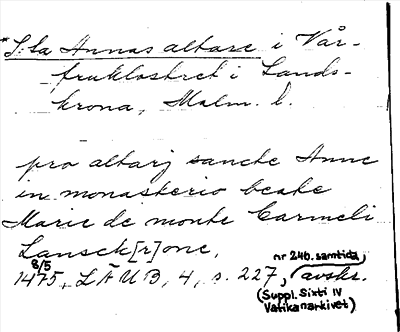 *S:ta Annas altare i Vår-
fruklostret i Lands-
krona, Malm. l.
pro altarj sancte Anne
in monasterio beate
Marie de monte Carmeli
Lansck[r]one,
nr 246. samtida,
8/5
1475, LÄUB, 4, s. 227, avskr.
(Suppl. Sixti IV
Vatikanarkivet)